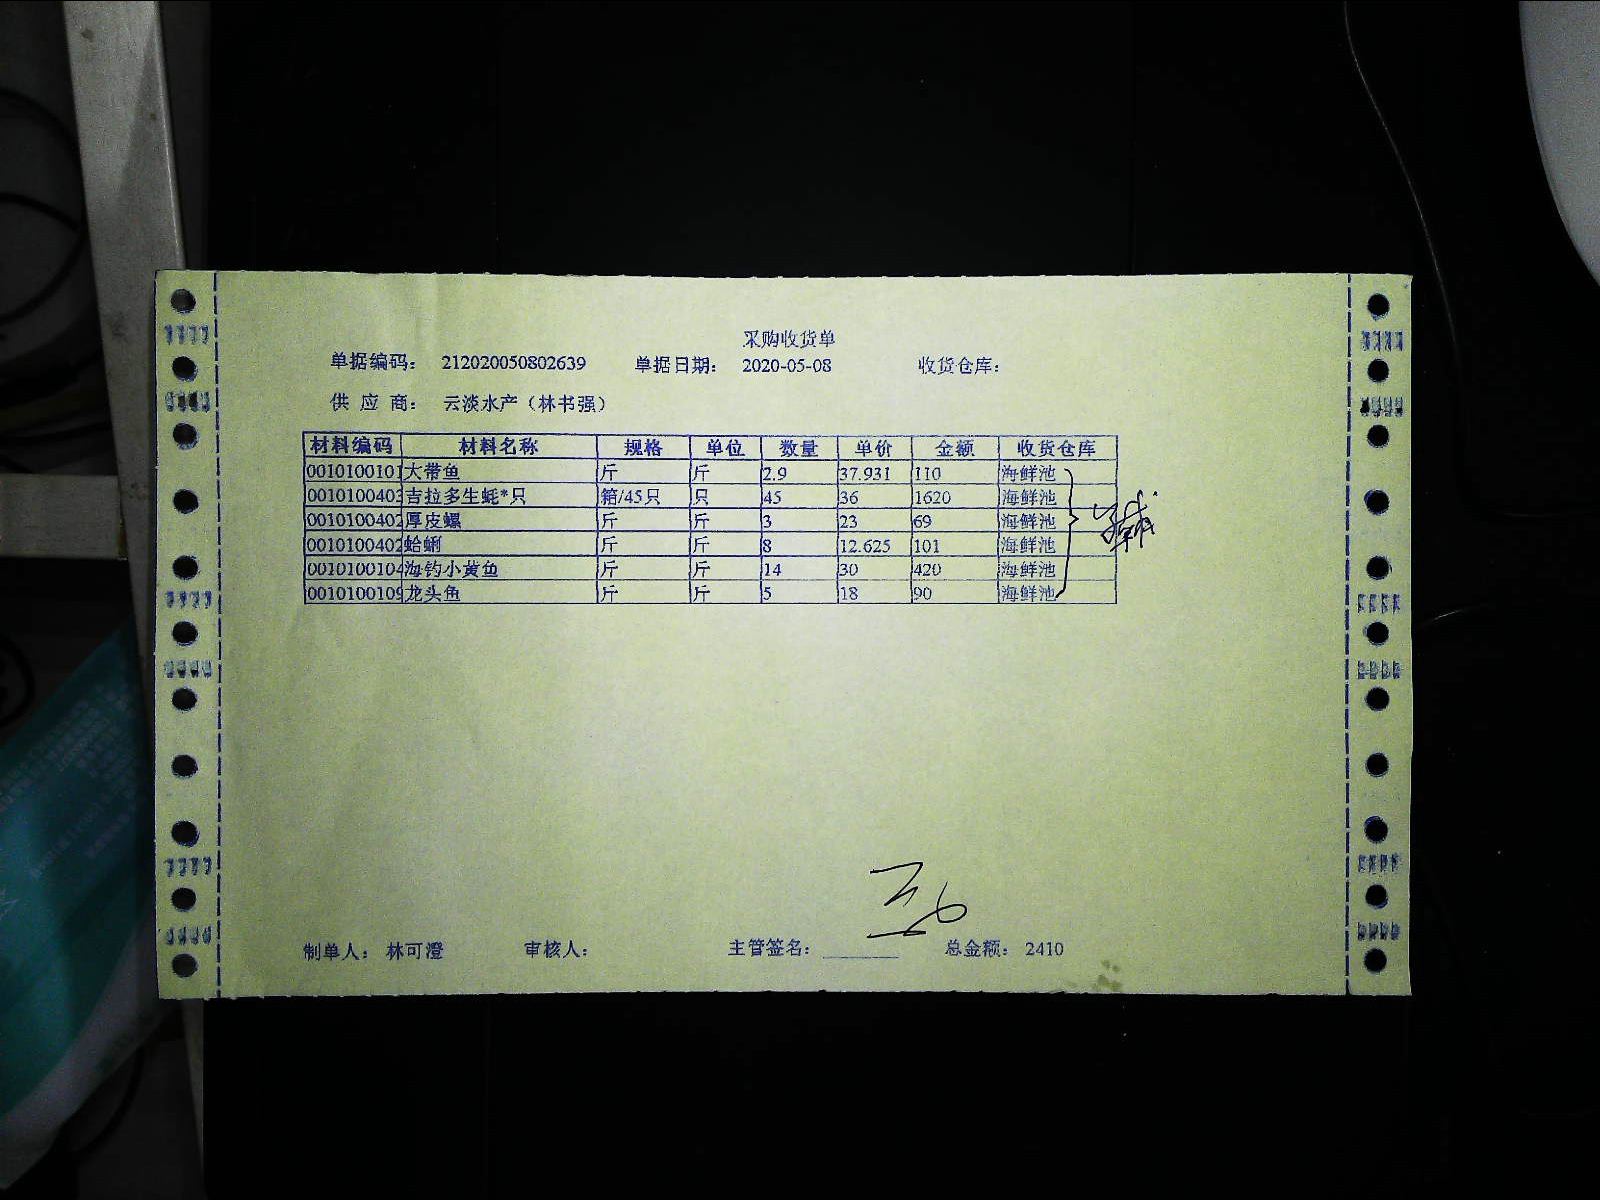 采购收货单
单据编码： 212020050802639 单据日期： 2020-05-08 收货仓库：
供 应 商： 云淡水产（林书强）
材料编码 材料名称 规格 单位 数量 单价 金额 收货仓库
0010100101 大带鱼 斤 斤 2.9 37.931 110 海鲜池
0010100403 吉拉多生蚝*只 箱/45只 只 45 36 1620 海鲜池
0010100402 厚皮螺 斤 斤 3 23 69 海鲜池
0010100402 蛤蜊 斤 斤 8 12.625 101 海鲜池
0010100104 海钓小黄鱼 斤 斤 14 30 420 海鲜池
0010100109 龙头鱼 斤 斤 5 18 90 海鲜池
制单人： 林可澄 审核人： 主管签名： 总金额： 2410